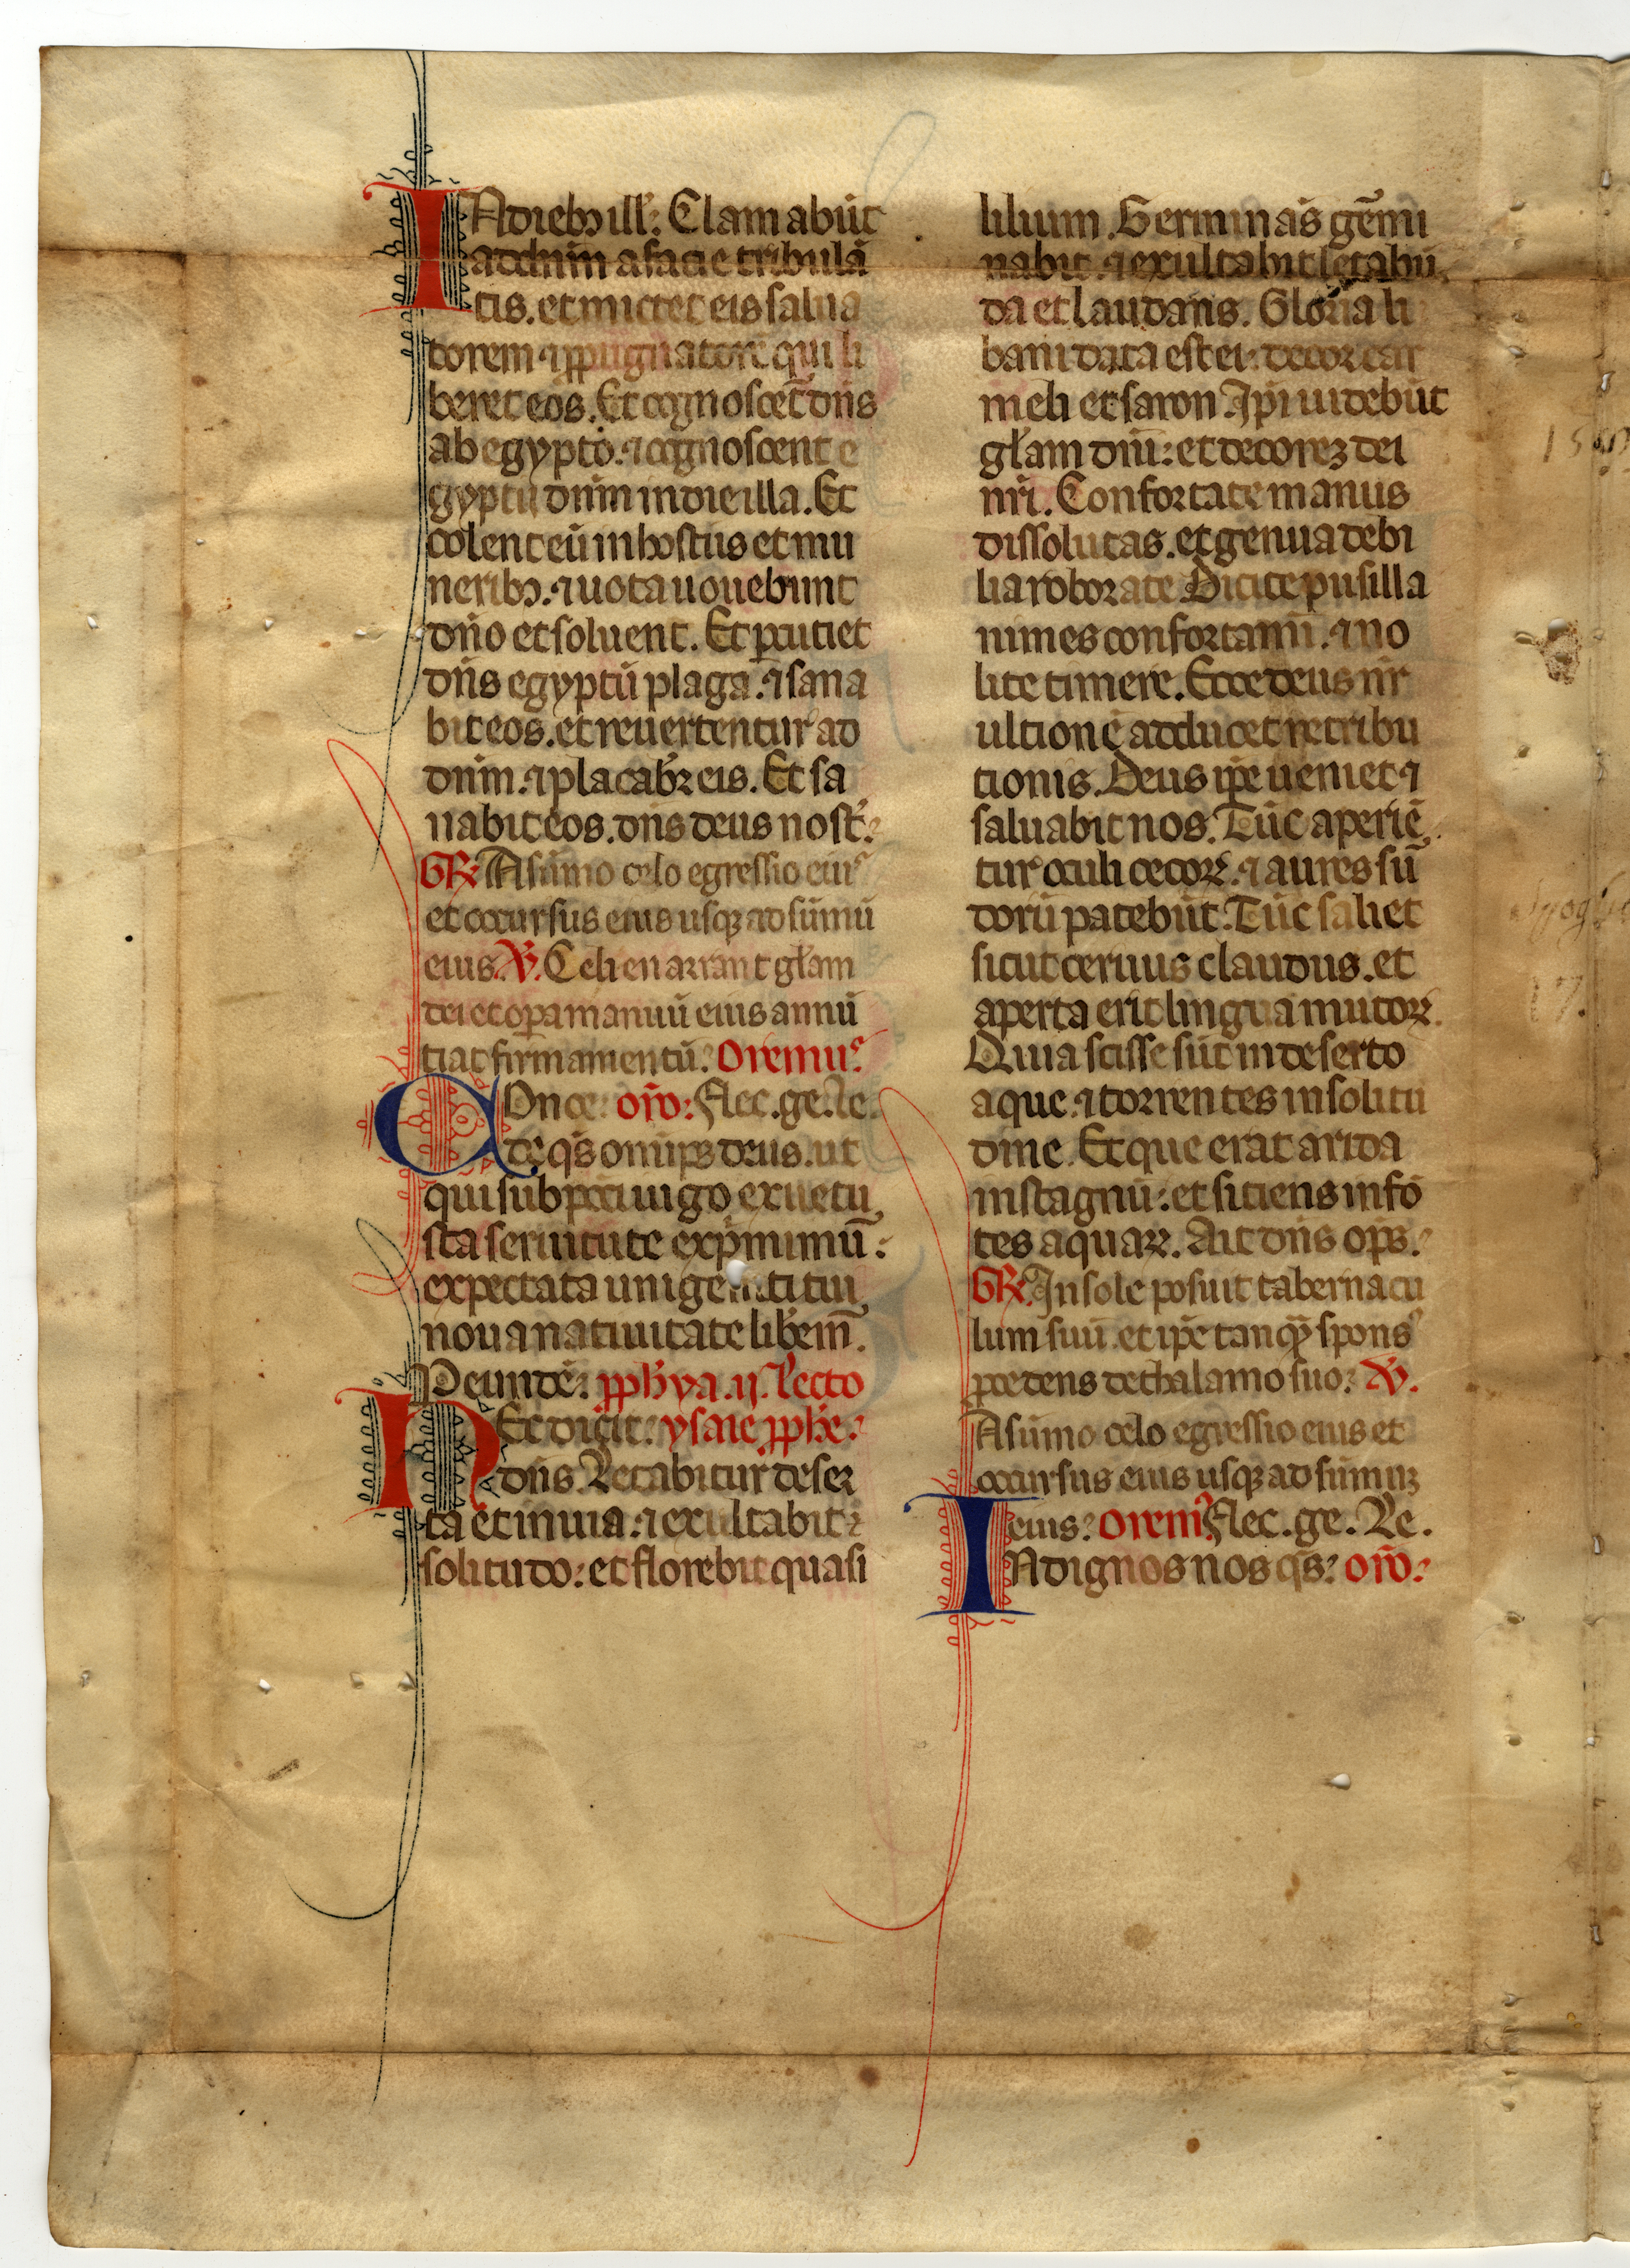 INdieb ill̄: Clamabūt
ad dn̄m a facie tribulā
tis. et mittet eis salua
torem ⁊ ꝓpugnatorē qui li
beret eos. Et cognoscet᷑ dn̄s
ab egypto. ⁊ cognoscent e
gyptii dn̄m in die illa. Et
colent eū in hostiis et mu
neribꝫ. ⁊ uota uouebunt
dn̄o et soluent. Et ꝑcutiet
dn̄s egyptū plaga. ⁊ sana
bit eos. et reuertentur ad
dn̄m. ⁊ placabr̄ eis. Et sa
nabit eos. dn̄s deus nost̄.
GR̄ A sūmo celo egressio eiꝰ
et occursus eius usqꝫ ad sūmū
eius. V̄. Celi enarrant gl̄am
dei et oꝑa manuū eius annū
tiat firmamentū. Oremuꝰ
COnce. or̄o. Flec. ge. le.
de qs̄ omīps deus. ut
qui sub pcc̄i iugo ex uetu
sta seruitute exp̄mimur̄:
expectata unigeniti tui
noua natiuitate liberem̄.
Deinde. ꝓph̄ya. ij. Lectio
HEc dicit. ysaie ꝓph̄e.
dn̄s. Letabitur deser
ta et inuia. ⁊ exultabit
solitudo: et florebit quasi
lilium. Germinās gēmi
nabit. ⁊ exultabit letabū
da et laudans. Gloria li
bani data est ei: decor car
meli et saron. Ip̄i uidebūt
gl̄am dn̄i: et decorez dei
nr̄i. Confortate manus
dissolutas. et genua debi
lia roborate. Dicite pusilla
nimes confortamī. ⁊ no
lite timere. Ecce deus nr̄
ultionē adducet retribu
tionis. Deus ip̄e ueniet ⁊
saluabit nos. Tūc aperiē
tur oculi cecoꝝ. ⁊ aures sur̄
dorū patebūt. Tūc saliet
sicut ceruus claudus. et
aperta erit lingua mutoꝝ.
Quia scisse sūt in deserto
aque. ⁊ torrentes in solitu
dine. Et que erat arida
in stagnū: et sitiens in fō
tes aquaꝝ. Ait dn̄s op̄s.
GR̄. In sole posuit tabernacu
lum suū. et ip̄e tanqȝ sponsꝰ
ꝓcedens de thalamo suo. V̄.
A sūmo celo egressio eius et
occursus eius usqꝫ ad sūmuꝫ
eius. Oremꝰ Flec. ge. Le.
INdignos nos qs̄. or̄o.